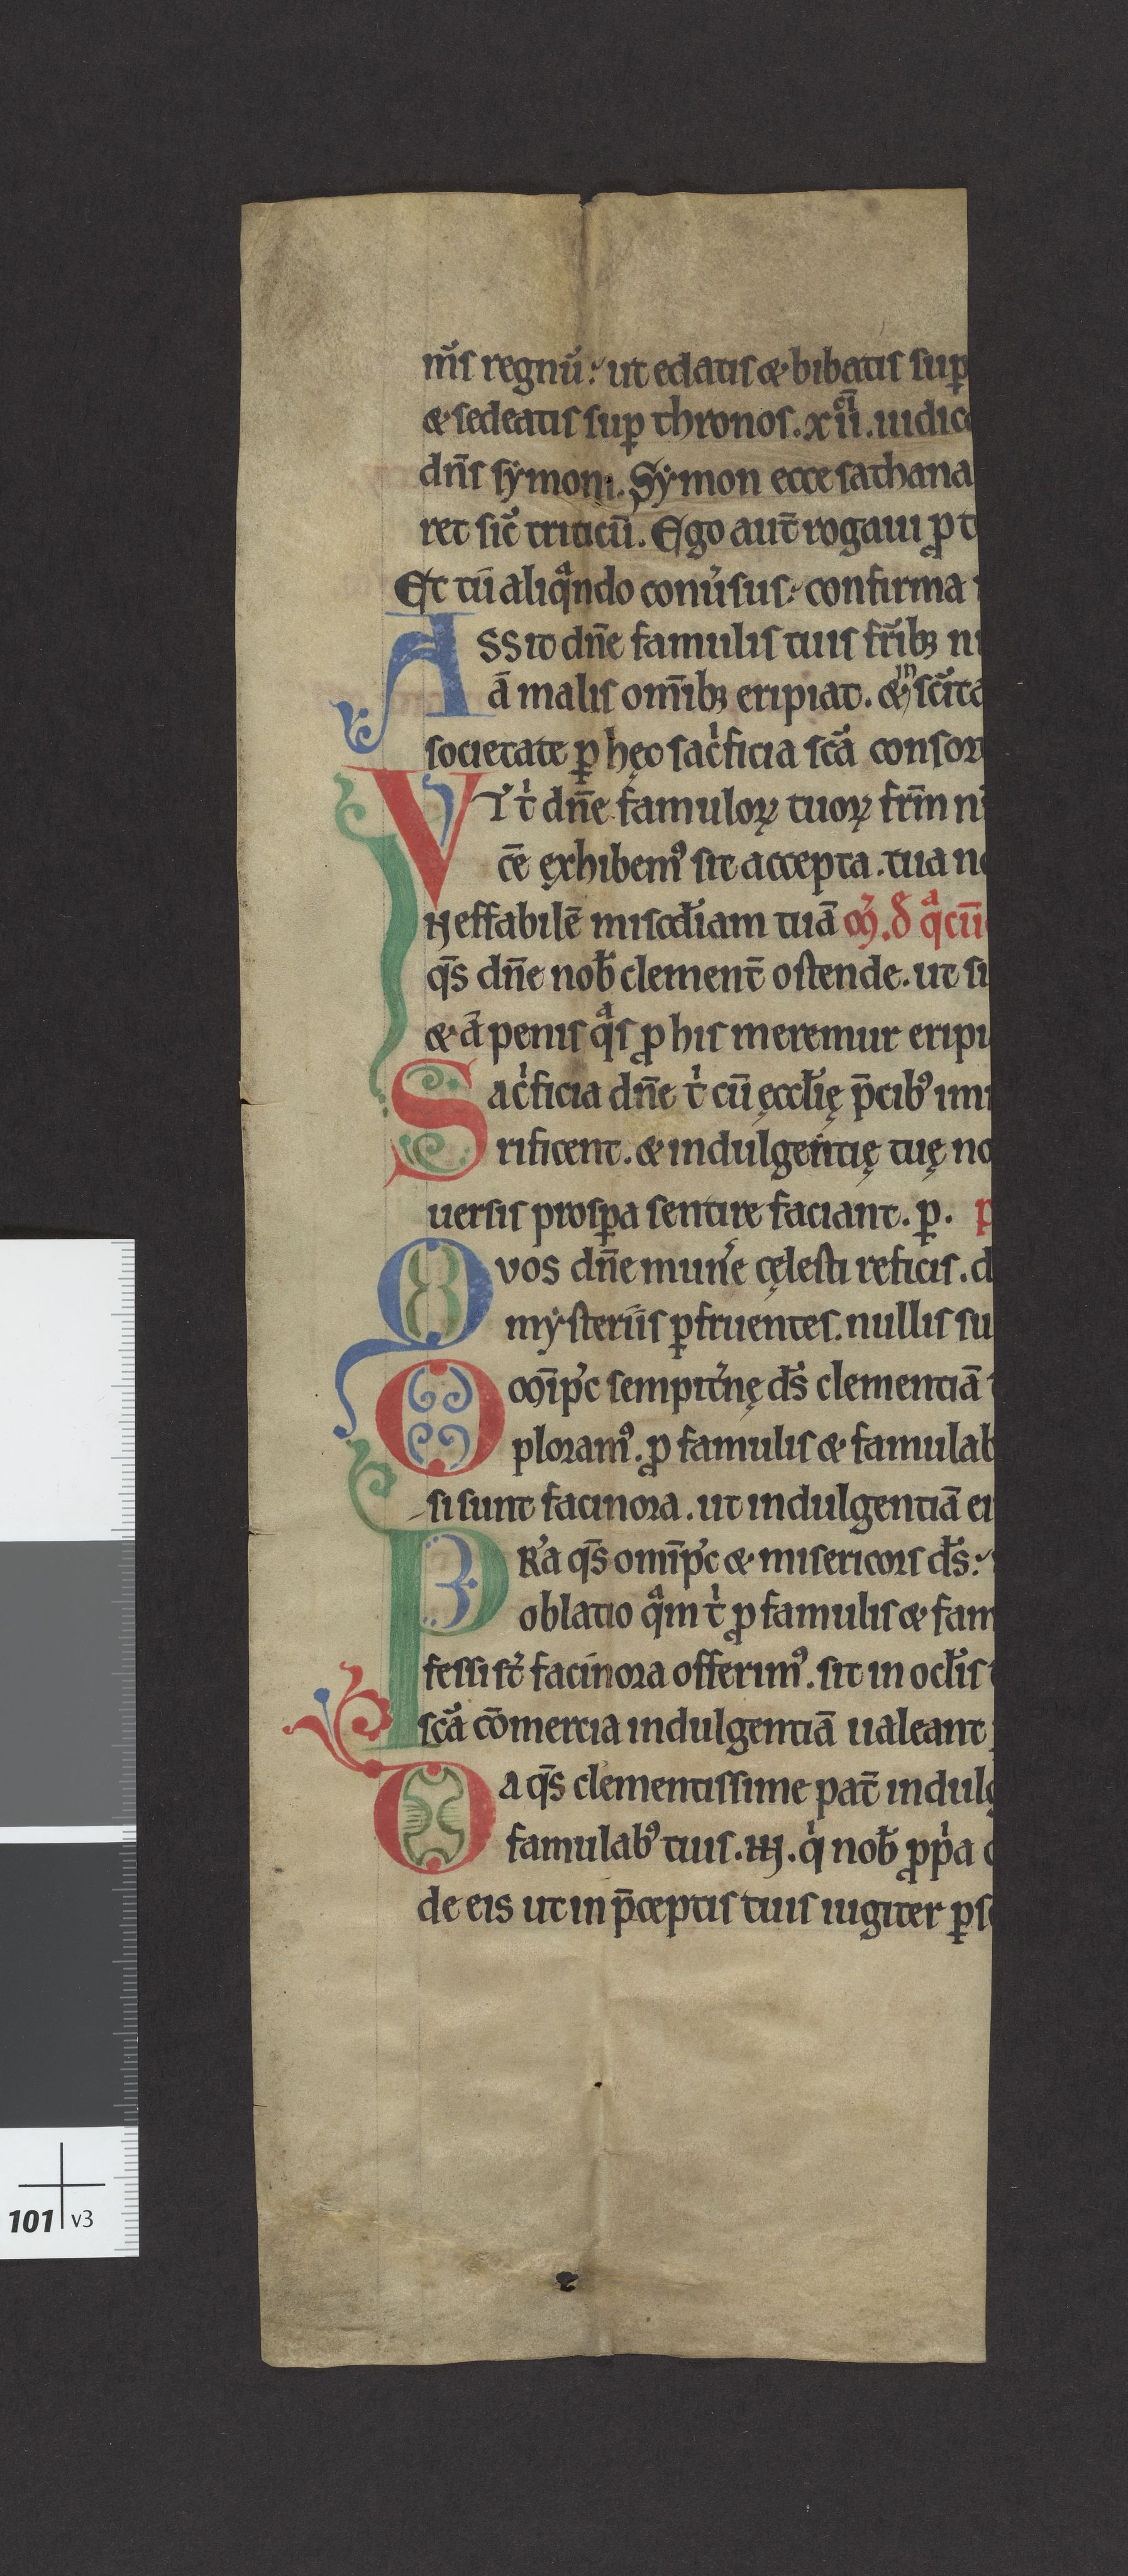 nr̄s regnū: ut edatis & bibatis sup
& sedeatis sup thronos. xii. iudic
dn̄s sẏmoni. Sẏmon ecce sathana
ret sic̄ triticū. Ego aut̄ rogaui ꝓ t
Et tū aliqᵃndo conūsus: confirma
Assit dn̄e famulis tuis fr̄ibꝫ n
ā malis om̄ibꝫ eripiat. & in sc̄ita
societate ꝑ hęc sac̍ficia sc̄a consor
VT t̍ dn̄e famuloꝝ tuoꝝ fr̄m n
cē ęxhibemꝰ sit accepta. tua n
Ineffabilē misc̄diam tuā
q̄s dn̄e nob̄ clement̄ ostende. ut si
& ā penis qᵃs ꝓ his meremur eripi
Sac̍ficia dn̄e t̍ cū ęccl̄ię p̄cibꝰ
rificent. & indulgentię tuę no
uersis prosꝑa sentire faciant. p.
Quos dn̄e mun̄e cęlesti reficis. d
mẏsteriis ꝑfruentes. nullis su
Om̄ip̄c sempit̄nę ds̄ clementiā
ploramꝰ. ꝓ famulis & famulab
si sunt facinora. ut indulgentiā ei
PR̄a q̄s om̄ip̄c & misericors ds̄:
oblatio qᵃm t̍ ꝓ famulis & fam
fessi st̄ facinora offerimꝰ. sit in ocl̄is
sc̄a cōmercia indulgentiā ualeant
Da q̄s clementissime pat̄ indulg
famulabꝰ tuis. N. q̍ nob̄ ꝓp̍a
de eis ut in p̄ceptis tuis iugiter ꝑs
101 v3